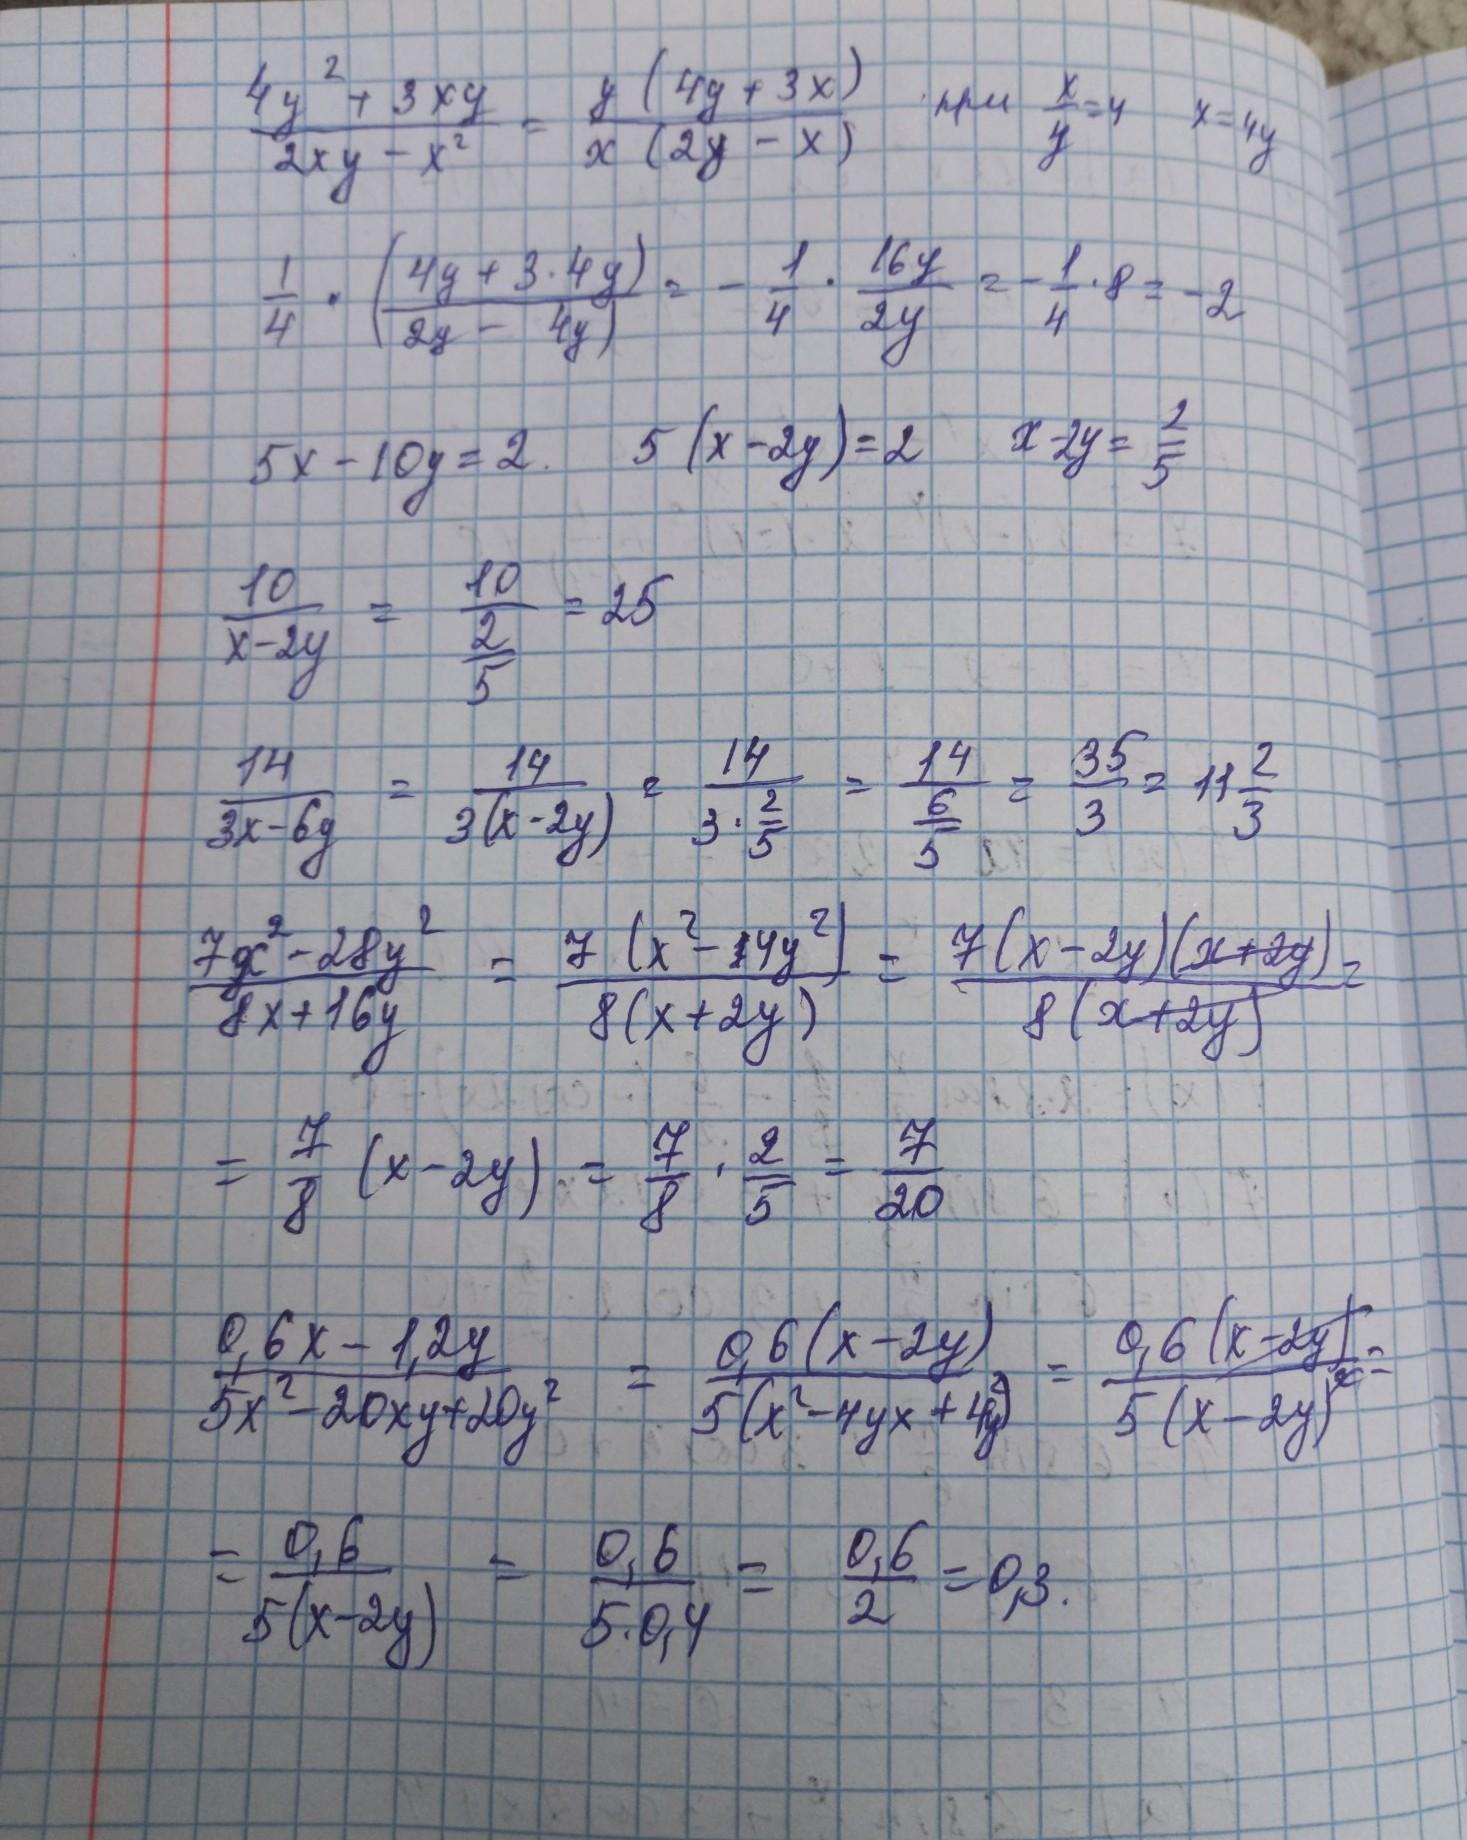 (4y² + 3xy)/(2xy − x²) = y(4y + 3x)/(x(2y − x)) при x/y = 4 x = 4y
1/4 · ((4y + 3·4y)/(2y − 4y)) = − 1/4 · 16y/2y = − 1/4 · 8 = −2
5x − 10y = 2. 5(x − 2y) = 2 x − 2y = 2/5
10/(x − 2y) = 10/(2/5) = 25
14/(3x − 6y) = 14/(3(x − 2y)) = 14/(3 · 2/5) = 14/(6/5) = 35/3 = 11 2/3
(7x² − 28y²)/(8x + 16y) = 7(x² − 4y²)/(8(x + 2y)) = 7(x − 2y)(x + 2y)/(8(x + 2y)) =
= 7/8 (x − 2y) = 7/8 · 2/5 = 7/20
(0,6x − 1,2y)/(5x² − 20xy + 20y²) = 0,6(x − 2y)/(5(x² − 4yx + 4y²)) = 0,6(x − 2y)/(5(x − 2y)²) =
= 0,6/(5(x − 2y)) = 0,6/(5·0,4) = 0,6/2 = 0,3.